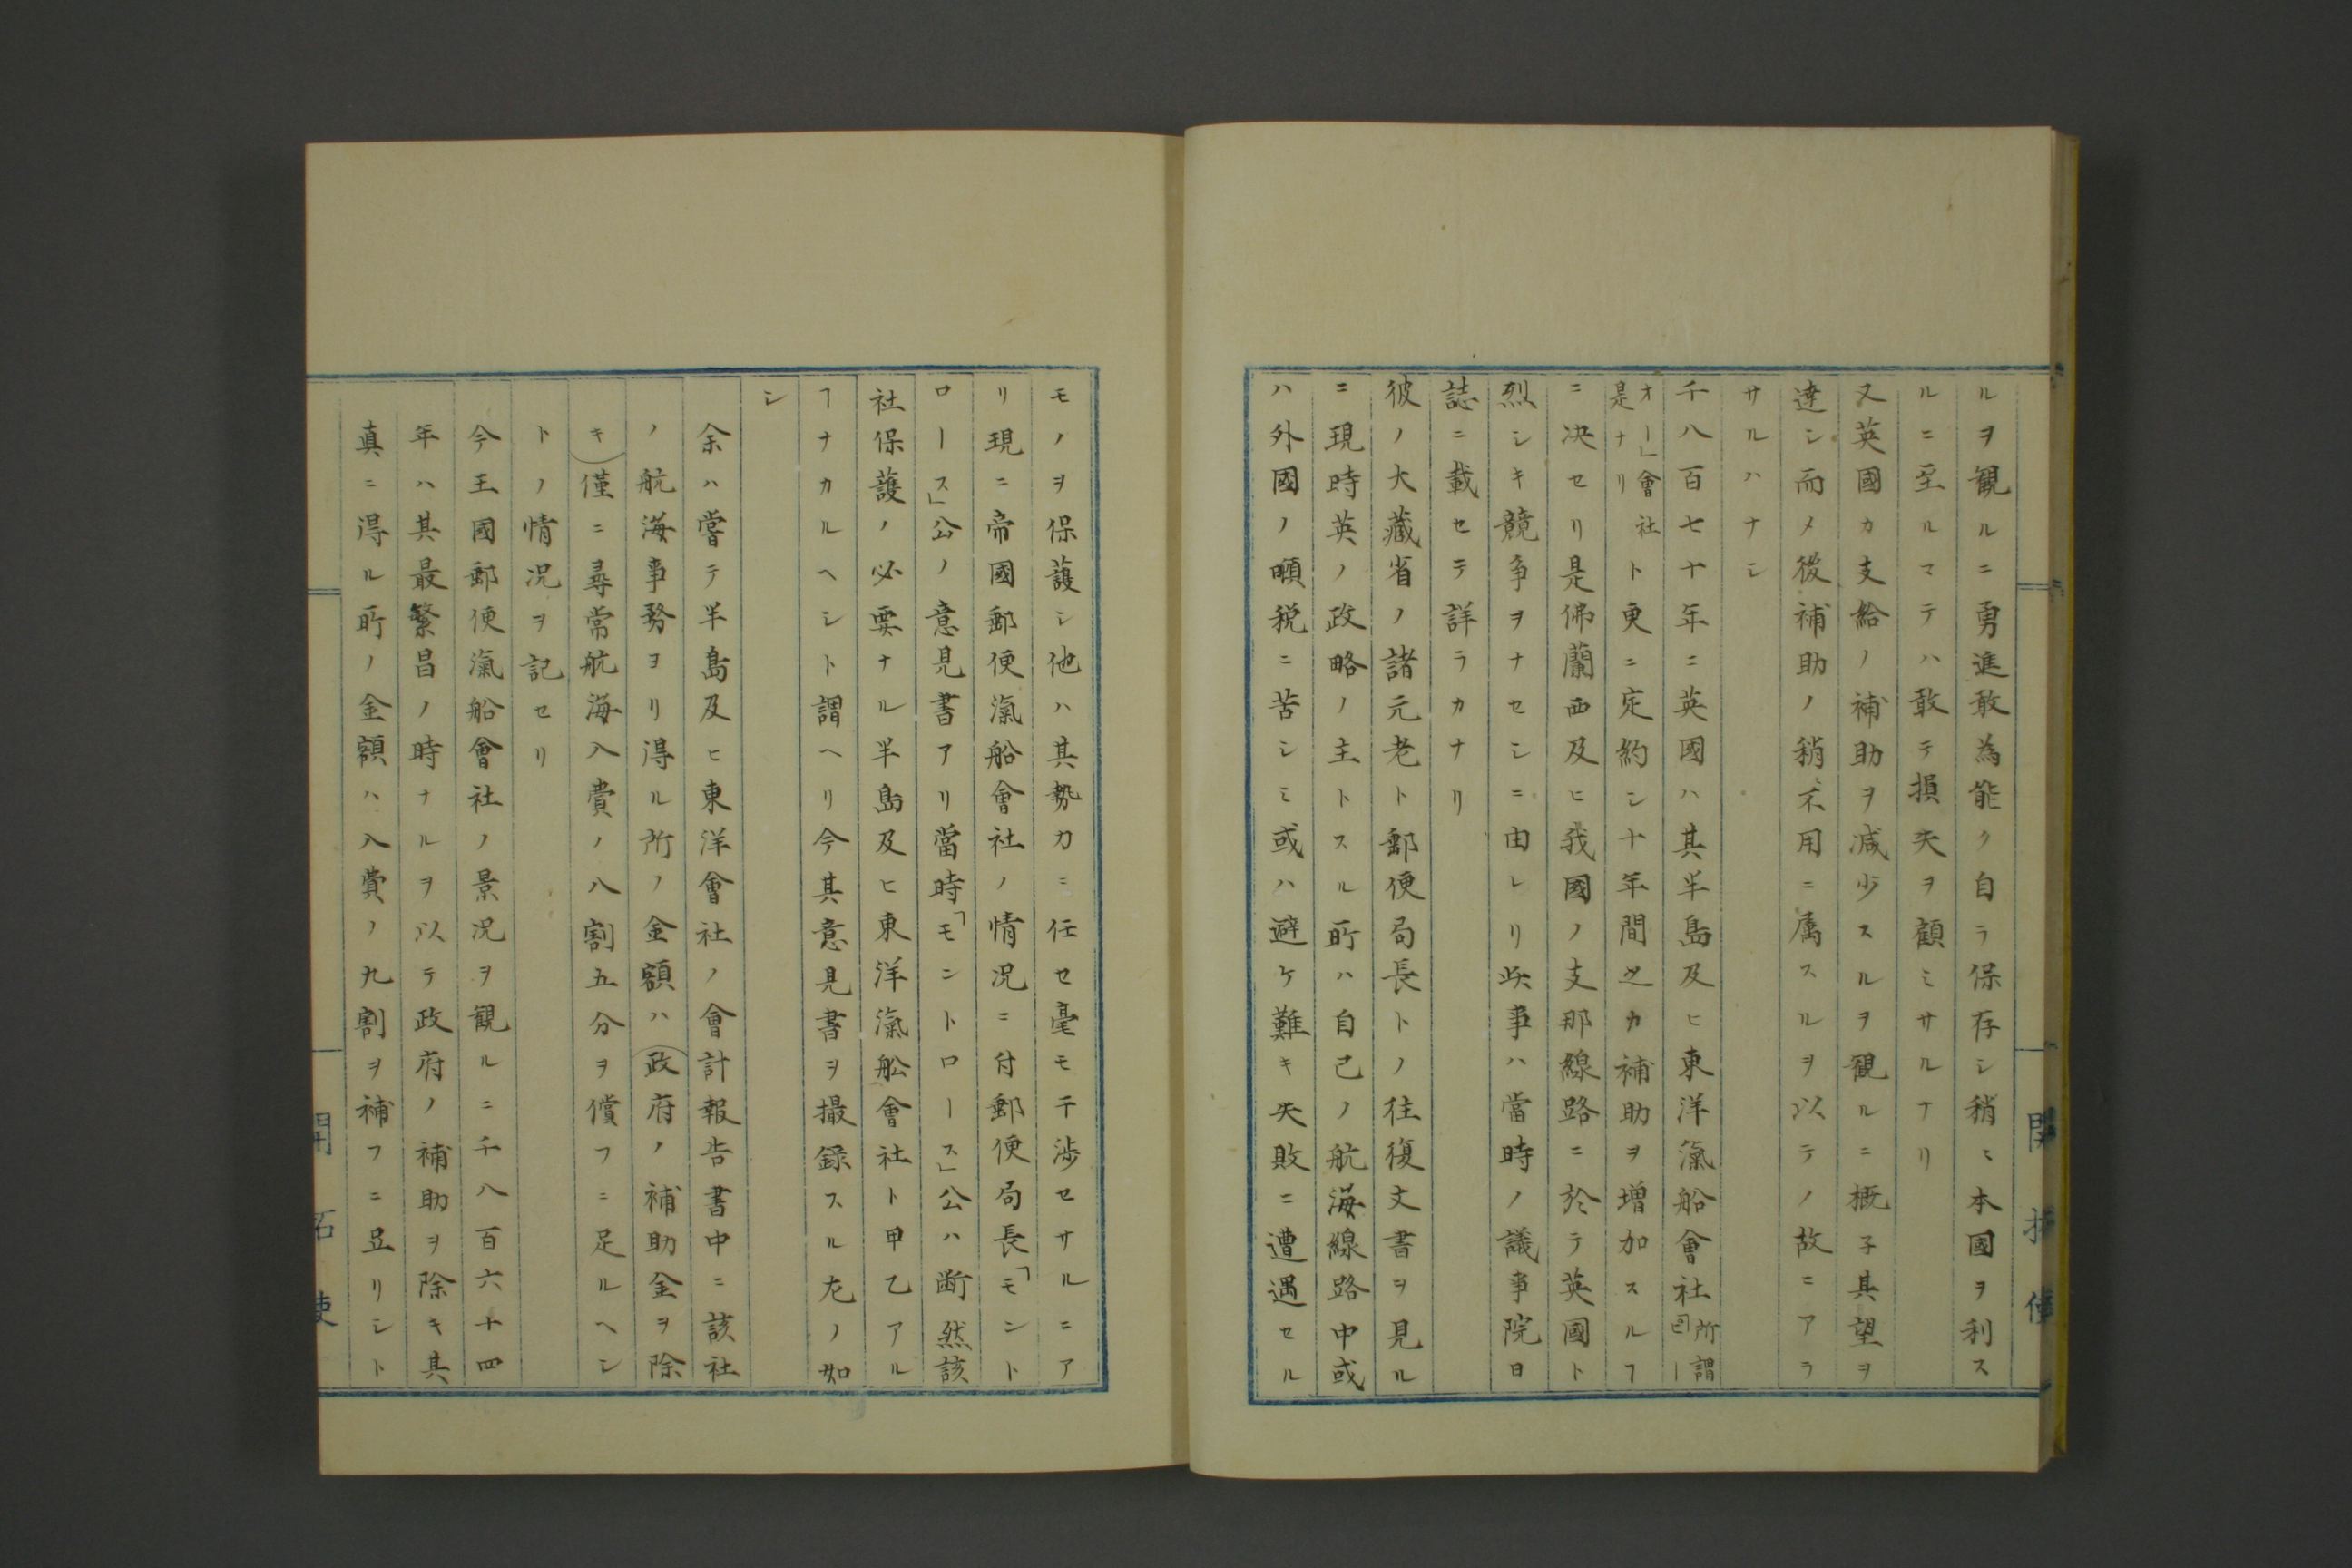 ルヲ觀ルニ勇進敢為能ク自ラ保存シ稍〻本國ヲ利ス
ルニ至ルマテハ敢テ損失ヲ顧ミサルナリ
又英國カ支給ノ補助ヲ減少スルヲ觀ルニ概子其望ヲ
達シ而メ後補助ノ稍〻不用ニ属スルヲ以テノ故ニアラ
サルハナシ
千八百七十年ニ英國ハ其半島及ヒ東洋滊船會社所謂「ピー
オー」會社是ナリト更ニ定約シ十年間之カ補助ヲ増加スルヿ
ニ决セリ是佛蘭西及ヒ我國ノ支那線路ニ於テ英國ト
烈シキ競争ヲナセシニ由レリ此事ハ當時ノ議事院日
誌ニ載セテ詳ラカナリ
彼ノ大藏省ノ諸元老ト郵便局長トノ往復文書ヲ見ル
ニ現時英ノ政略ノ主トスル所ハ自己ノ航海線路中或
ハ外國ノ噸税ニ苦シミ或ハ避ケ難キ失敗ニ遭遇セル
モノヲ保護シ他ハ其勢力ニ任セ毫モ干渉セサルニア
リ現ニ帝國郵便滊船會社ノ情况ニ付郵便局長「モント
ロース」公ノ意見書アリ當時「モントロース」公ハ断然該
社保護ノ必要ナル半島及ヒ東洋滊舩會社ト甲乙アル
ヿナカルヘシト謂ヘリ今其意見書ヲ撮録スル左ノ如
シ
余ハ嘗テ半島及ヒ東洋會社ノ會計報告書中ニ該社
ノ航海事務ヨリ得ル所ノ金額ハ(政府ノ補助金ヲ除
キ)僅ニ尋常航海入費ノ八割五分ヲ償フニ足ルヘシ
トノ情况ヲ記セリ
今王國郵便滊船會社ノ景况ヲ觀ルニ千八百六十四
年ハ其最繁昌ノ時ナルヲ以テ政府ノ補助ヲ除キ其
真ニ得ル所ノ金額ハ入費ノ九割ヲ補フニ足リシト
開拓使